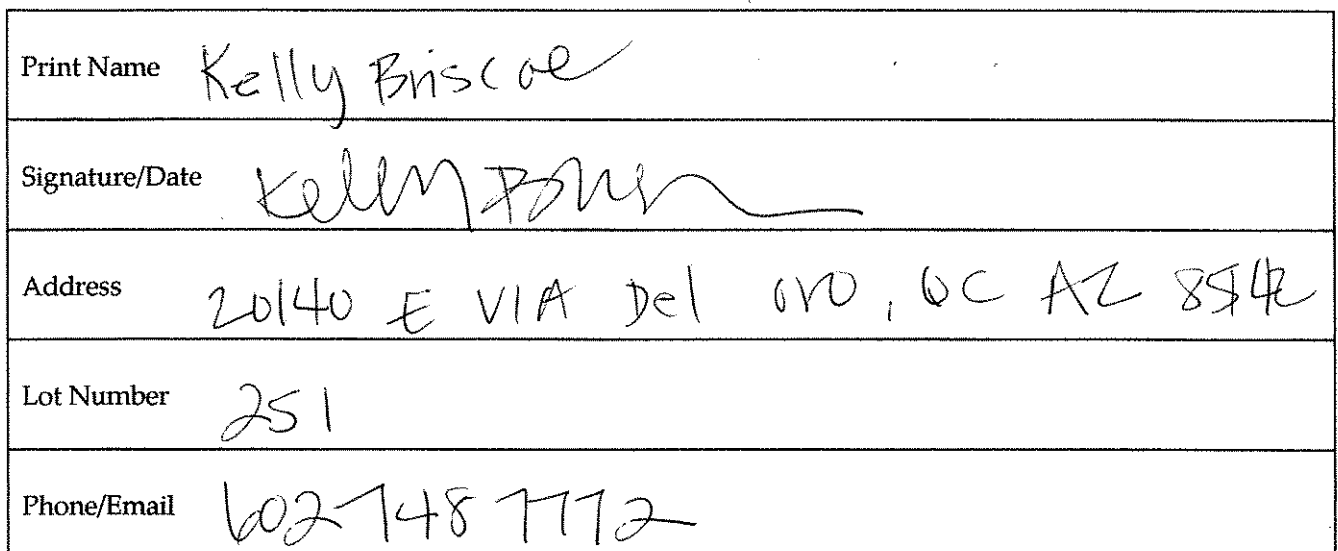 Print Name Kelly Briscoe
Signature/Date Kelly
Address 20140 E VIA Del oro, QC AZ
Lot Number 251
Phone/Email 602 748 7772